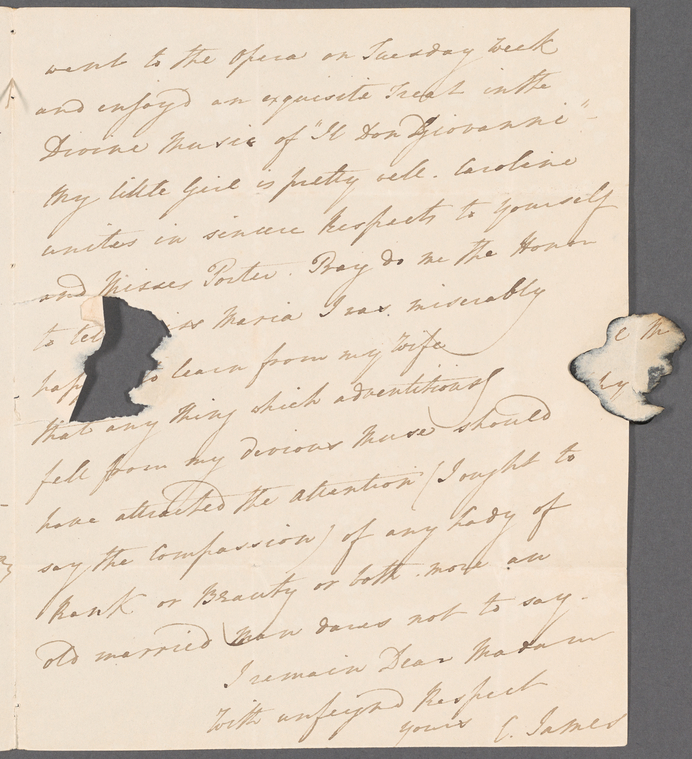 went to the Opera on Tuesday Week
and enjoyd an exquisite Treat in the
Divine Music of "Il Don Giovanni" -
My little Girl is pretty well. Caroline
unites in sincere Respects to Yourself
and Misses Porter. Pray do me the Honor
to tell ss Maria I was miserably
hap o learn from my Wife
that any thing which adventitious
fell from my devious Muse should
have attracted the attention (I ought to
say the Compassion) of any Lady of
Rank or Beauty or both. more an
old married Man dares not to say.
I remain Dear Madam
With unfeignd Respect
yours C. James
e M
y